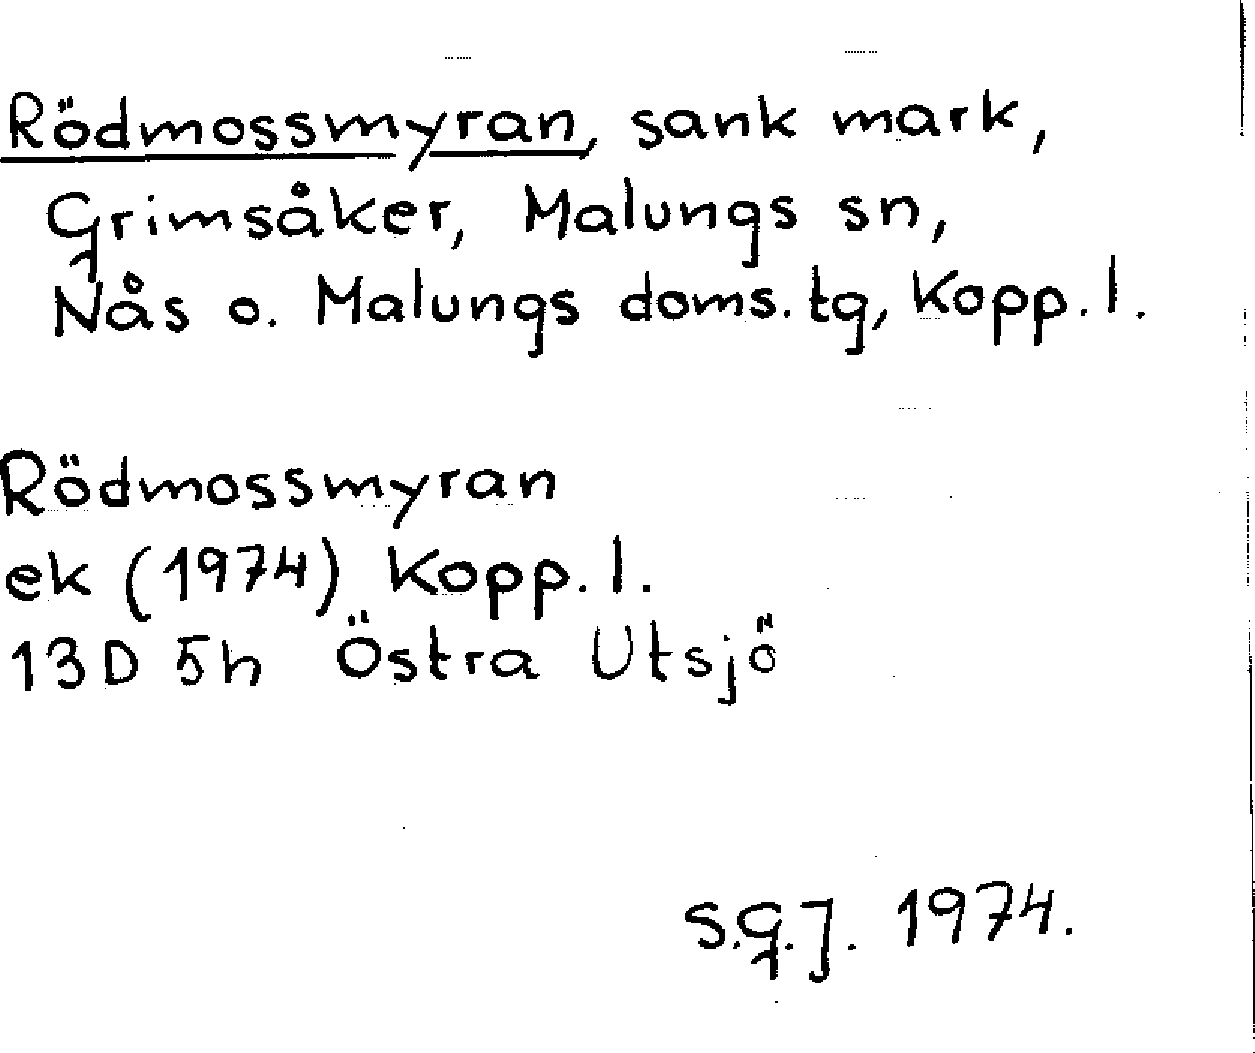 Rödmossmyran, sank mark,
Grimsåker, Malungs sn,
Nås o. Malungs doms. tg, Kopp. l.
Rödmossmyran
ek (1974) Kopp. l.
13D 5h Östra Utsjö
S.G.J. 1974.